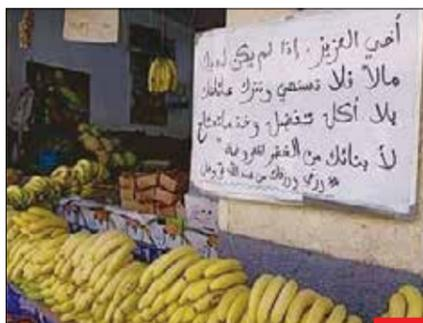 أخي العزيز. إذا لم يكن لديك
مالاً فلا تستحي وتترك عائلتك
بلا أكل تفضل وخذ ماتحتاج
لأبنائك من الخضر الخضروات
"رزقي ورزقك من عند الله عز وجل"